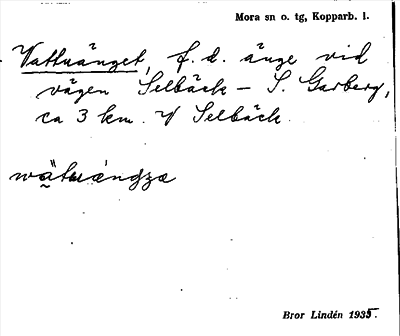 Mora sn o. tg, Kopparb. l.
Vattuänget, f. d. änge vid
vägen Selbäck – S. Garberg,
ca 3 km. V Selbäck.
Bror Lindén 1935.